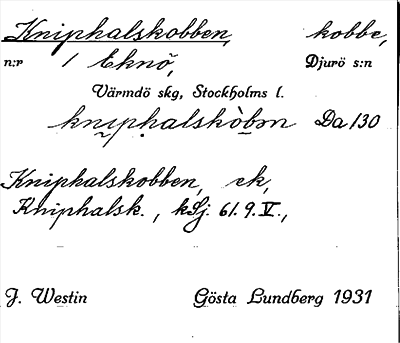 Kniphalskobben, kobbe,
n:r / Eknö, Djurö s:n
Värmdö skg, Stockholms l.
kni̯pḥalskò̱bən Da 130
Kniphalskobben, ek,
Kniphalsk., kSj. 61.9.V.,
J. Westin Gösta Lundberg 1931